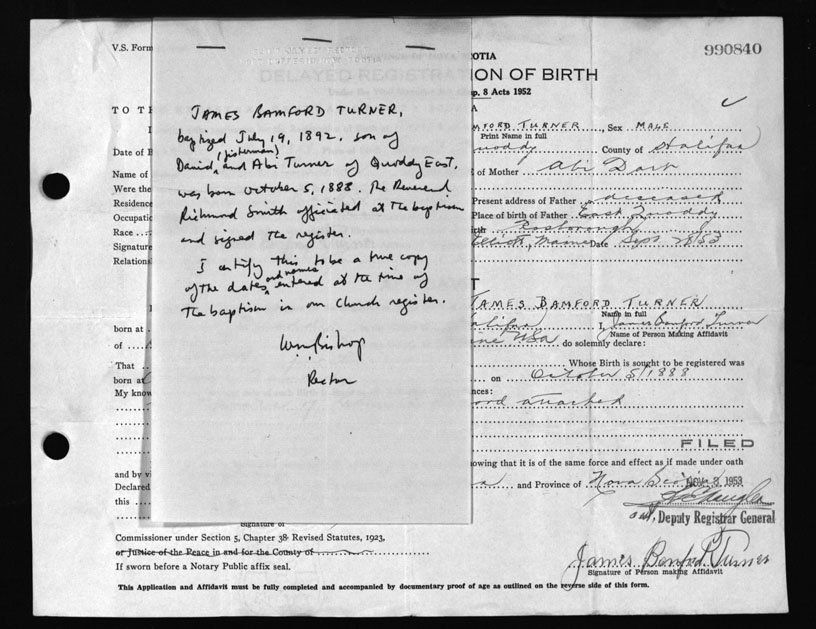 V.S. Form
OTIA
990840
ION OF BIRTH
p. 8 Acts 1952
TO T
A
JAMES BAMFORD TURNER,
baptized July 19, 1892. son of
David (fisherman) and Abi Turner of Quoddy East,
was born October 5, 1888. The Reverend
Richmond Smith officiated at the baptism
and signed the register.
I certify this to be a true copy
of the dates and names entered at the time of
the baptism in our church register.
Wm Bishop
Rector
MFORD TURNER, Sex MALE
Print Name in full
Date of B
uoddy County of Halifax
Name of
of Mother Abi
Were the
Present address of Father deceased
Residence
Place of birth of Father East Quoddy
Occupatio
rth
Race
Maine Date Sept 28/53
Signature
Relations
T
JAMES BAMFORD TURNER
Name in full
born at
alifax I, James Bamford Turner
Name of Person Making Affidavit
of
ine USA do solemnly declare:
That
Whose Birth is sought to be registered was
born at
on October 5/1888
My know
nces:
ord attached
FILED
and by vi
owing that it is of the same force and effect as if made under oath
Declared
and Province of Nova Sco
3 1953
this
Deputy Registrar General
Signature of
Commissioner under Section 5, Chapter 38 Revised Statutes, 1923,
or Justice of the Peace in and for the County of
If sworn before a Notary Public affix seal.
James Bamford Turner
Signature of Person making Affidavit
This Application and Affidavit must be fully completed and accompanied by documentary proof of age as outlined on the reverse side of this form.